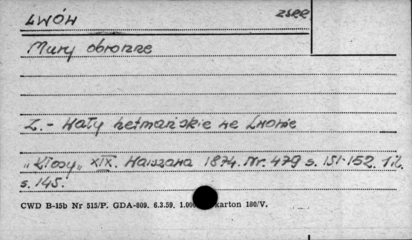 LWÓW
Mury obronne
Z. - Wały hetmańskie we Lwowie
"Kłosy" XIX. Warszawa 1874. Nr. 479 s. 151-152. Il.
s. 145.
CWD B-15b Nr 515/P. GDA-809. 6.3.59. 1.000 karton 180/V.